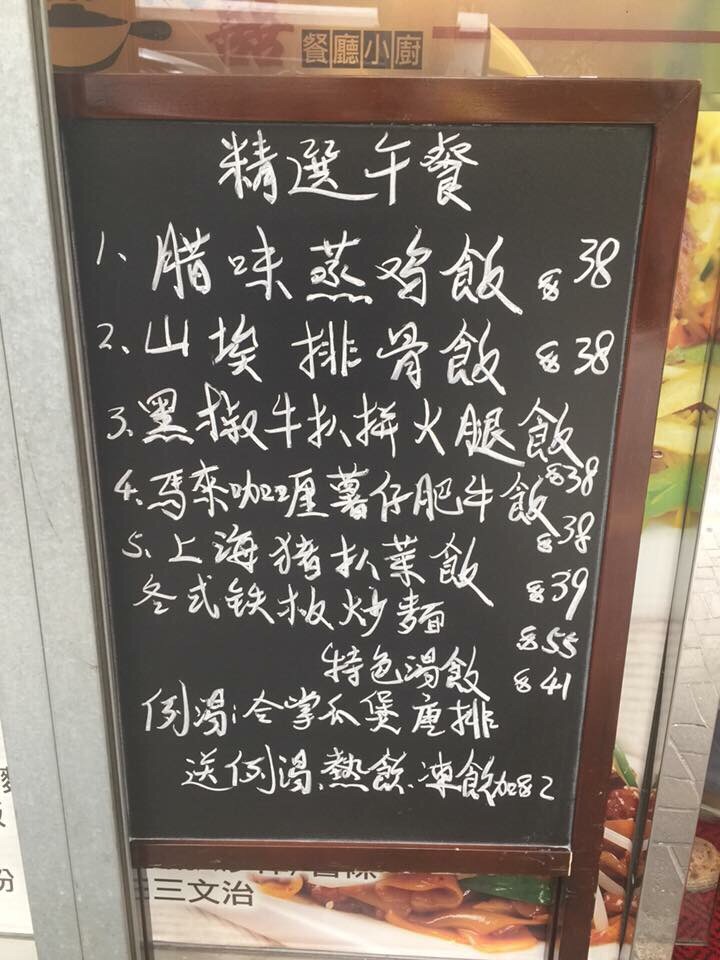 餐廳小廚
精選午餐
1、腊味蒸鸡飯 $38
2、山埃排骨飯 $38
3、黑椒牛扒拼火腿飯 $38
4、馬來咖喱薯仔肥牛飯 $38
5、上海猪扒菜飯 $39
各式铁板炒麵 $55
特色湯飯 $41
例湯:合掌瓜煲唐排
送例湯、熱飲、凍飲加$2
三文治
份